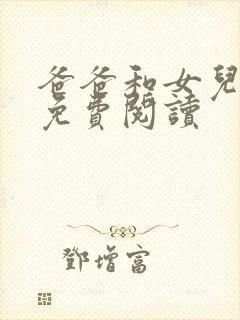 爸爸和女兒
免費閱讀
鄧增富